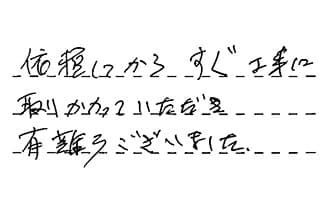 依頼してからすぐ工事に
取りかかっていただき
有難うございました.